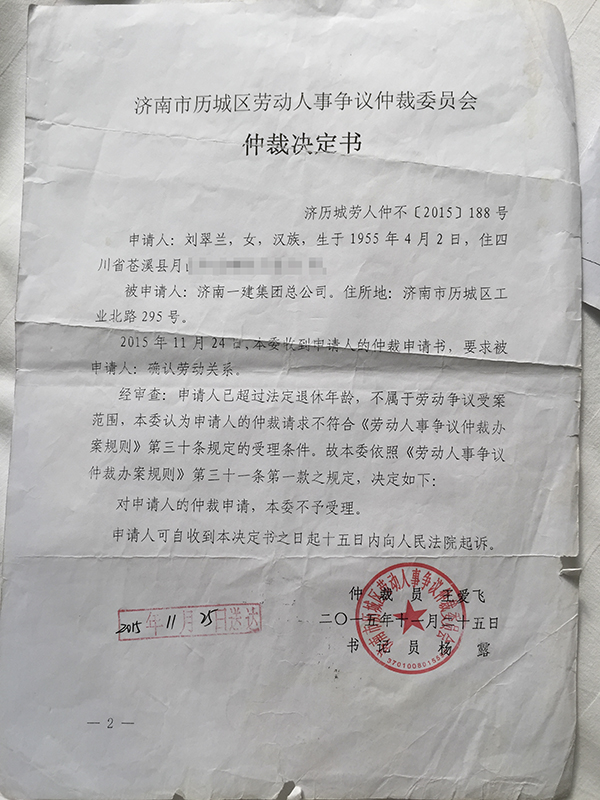 济南市历城区劳动人事争议仲裁委员会
仲裁决定书
济历城劳人仲不〔2015〕188号
申请人：刘翠兰，女，汉族，生于1955年4月2日，住四
川省苍溪县月
被申请人：济南一建集团总公司。住所地：济南市历城区工
业北路295号。
2015年11月24日，本委收到申请人的仲裁申请书，要求被
申请人：确认劳动关系。
经审查：申请人已超过法定退休年龄，不属于劳动争议受案
范围，本委认为申请人的仲裁请求不符合《劳动人事争议仲裁办
案规则》第三十条规定的受理条件。故本委依照《劳动人事争议
仲裁办案规则》第三十一条第一款之规定，决定如下：
对申请人的仲裁申请，本委不予受理。
申请人可自收到本决定书之日起十五日内向人民法院起诉。
仲裁员 王爱飞
二〇一五年十一月二十五日
书记员 杨露
济南市历城区劳动人事争议仲裁委员会
2015年11月25日送达
— 2 —